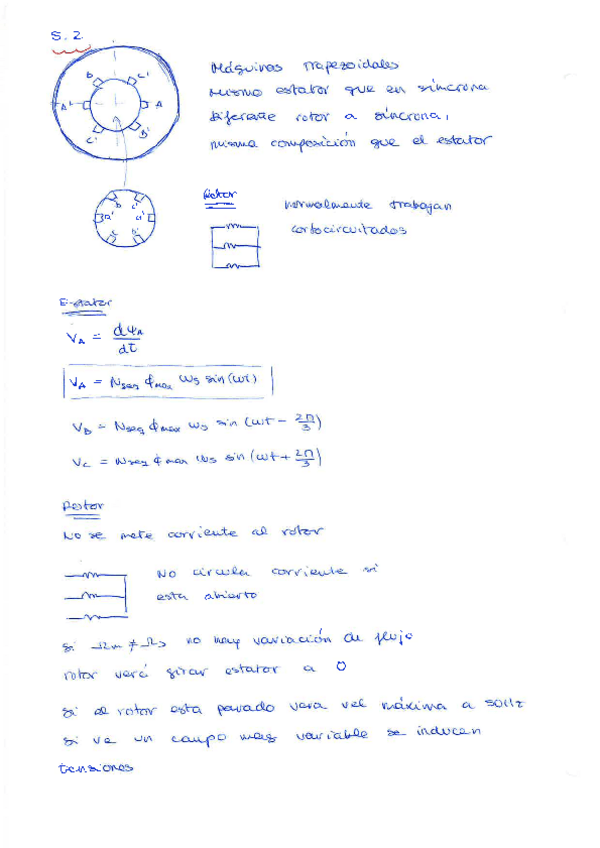 5.2
Máquinas trapezoidales
mismo estator que en síncrona
diferente rotor a síncrona,
misma composición que el estator
b c'
A' A
c' B'
Rotor
normalmente trabajan
cortocircuitados
Estator
V_A = dΨ_A / dt
V_A = Nseg ϕmax ωs sin(ωt)
V_B = Nseg ϕmax ωs sin(ωt - 2π/3)
V_C = Nseg ϕmax ωs sin(ωt + 2π/3)
Rotor
No se mete corriente al rotor
No circula corriente si
esta abierto
si Ωm ≠ Ωs no hay variación de flujo
rotor verá girar estator a 0
si el rotor esta parado vera vel máxima a 50Hz
si ve un campo mag variable se inducen
tensiones